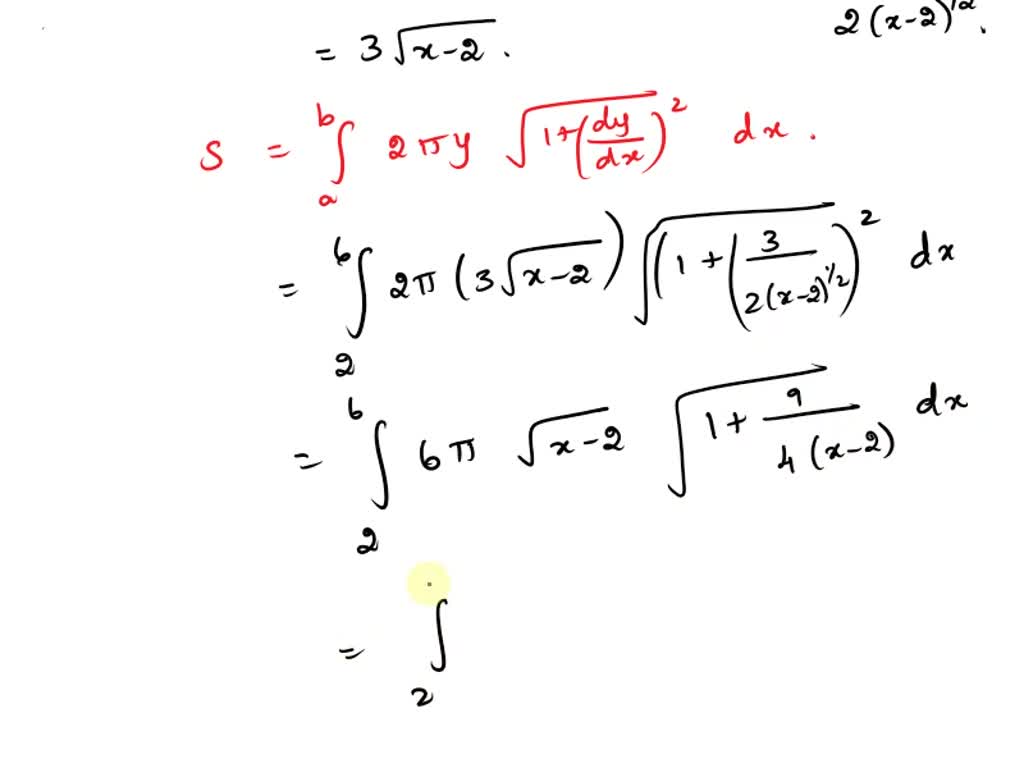 2(x-2)^{1/2}.
= 3√(x-2).
S = ∫_a^b 2πy √(1+(dy/dx)^2) dx.
= ∫_2^6 2π(3√(x-2)) √((1+(3/(2(x-2)^{1/2}))^2) dx
= ∫_2^6 6π √(x-2) √(1+9/(4(x-2))) dx
= ∫_2